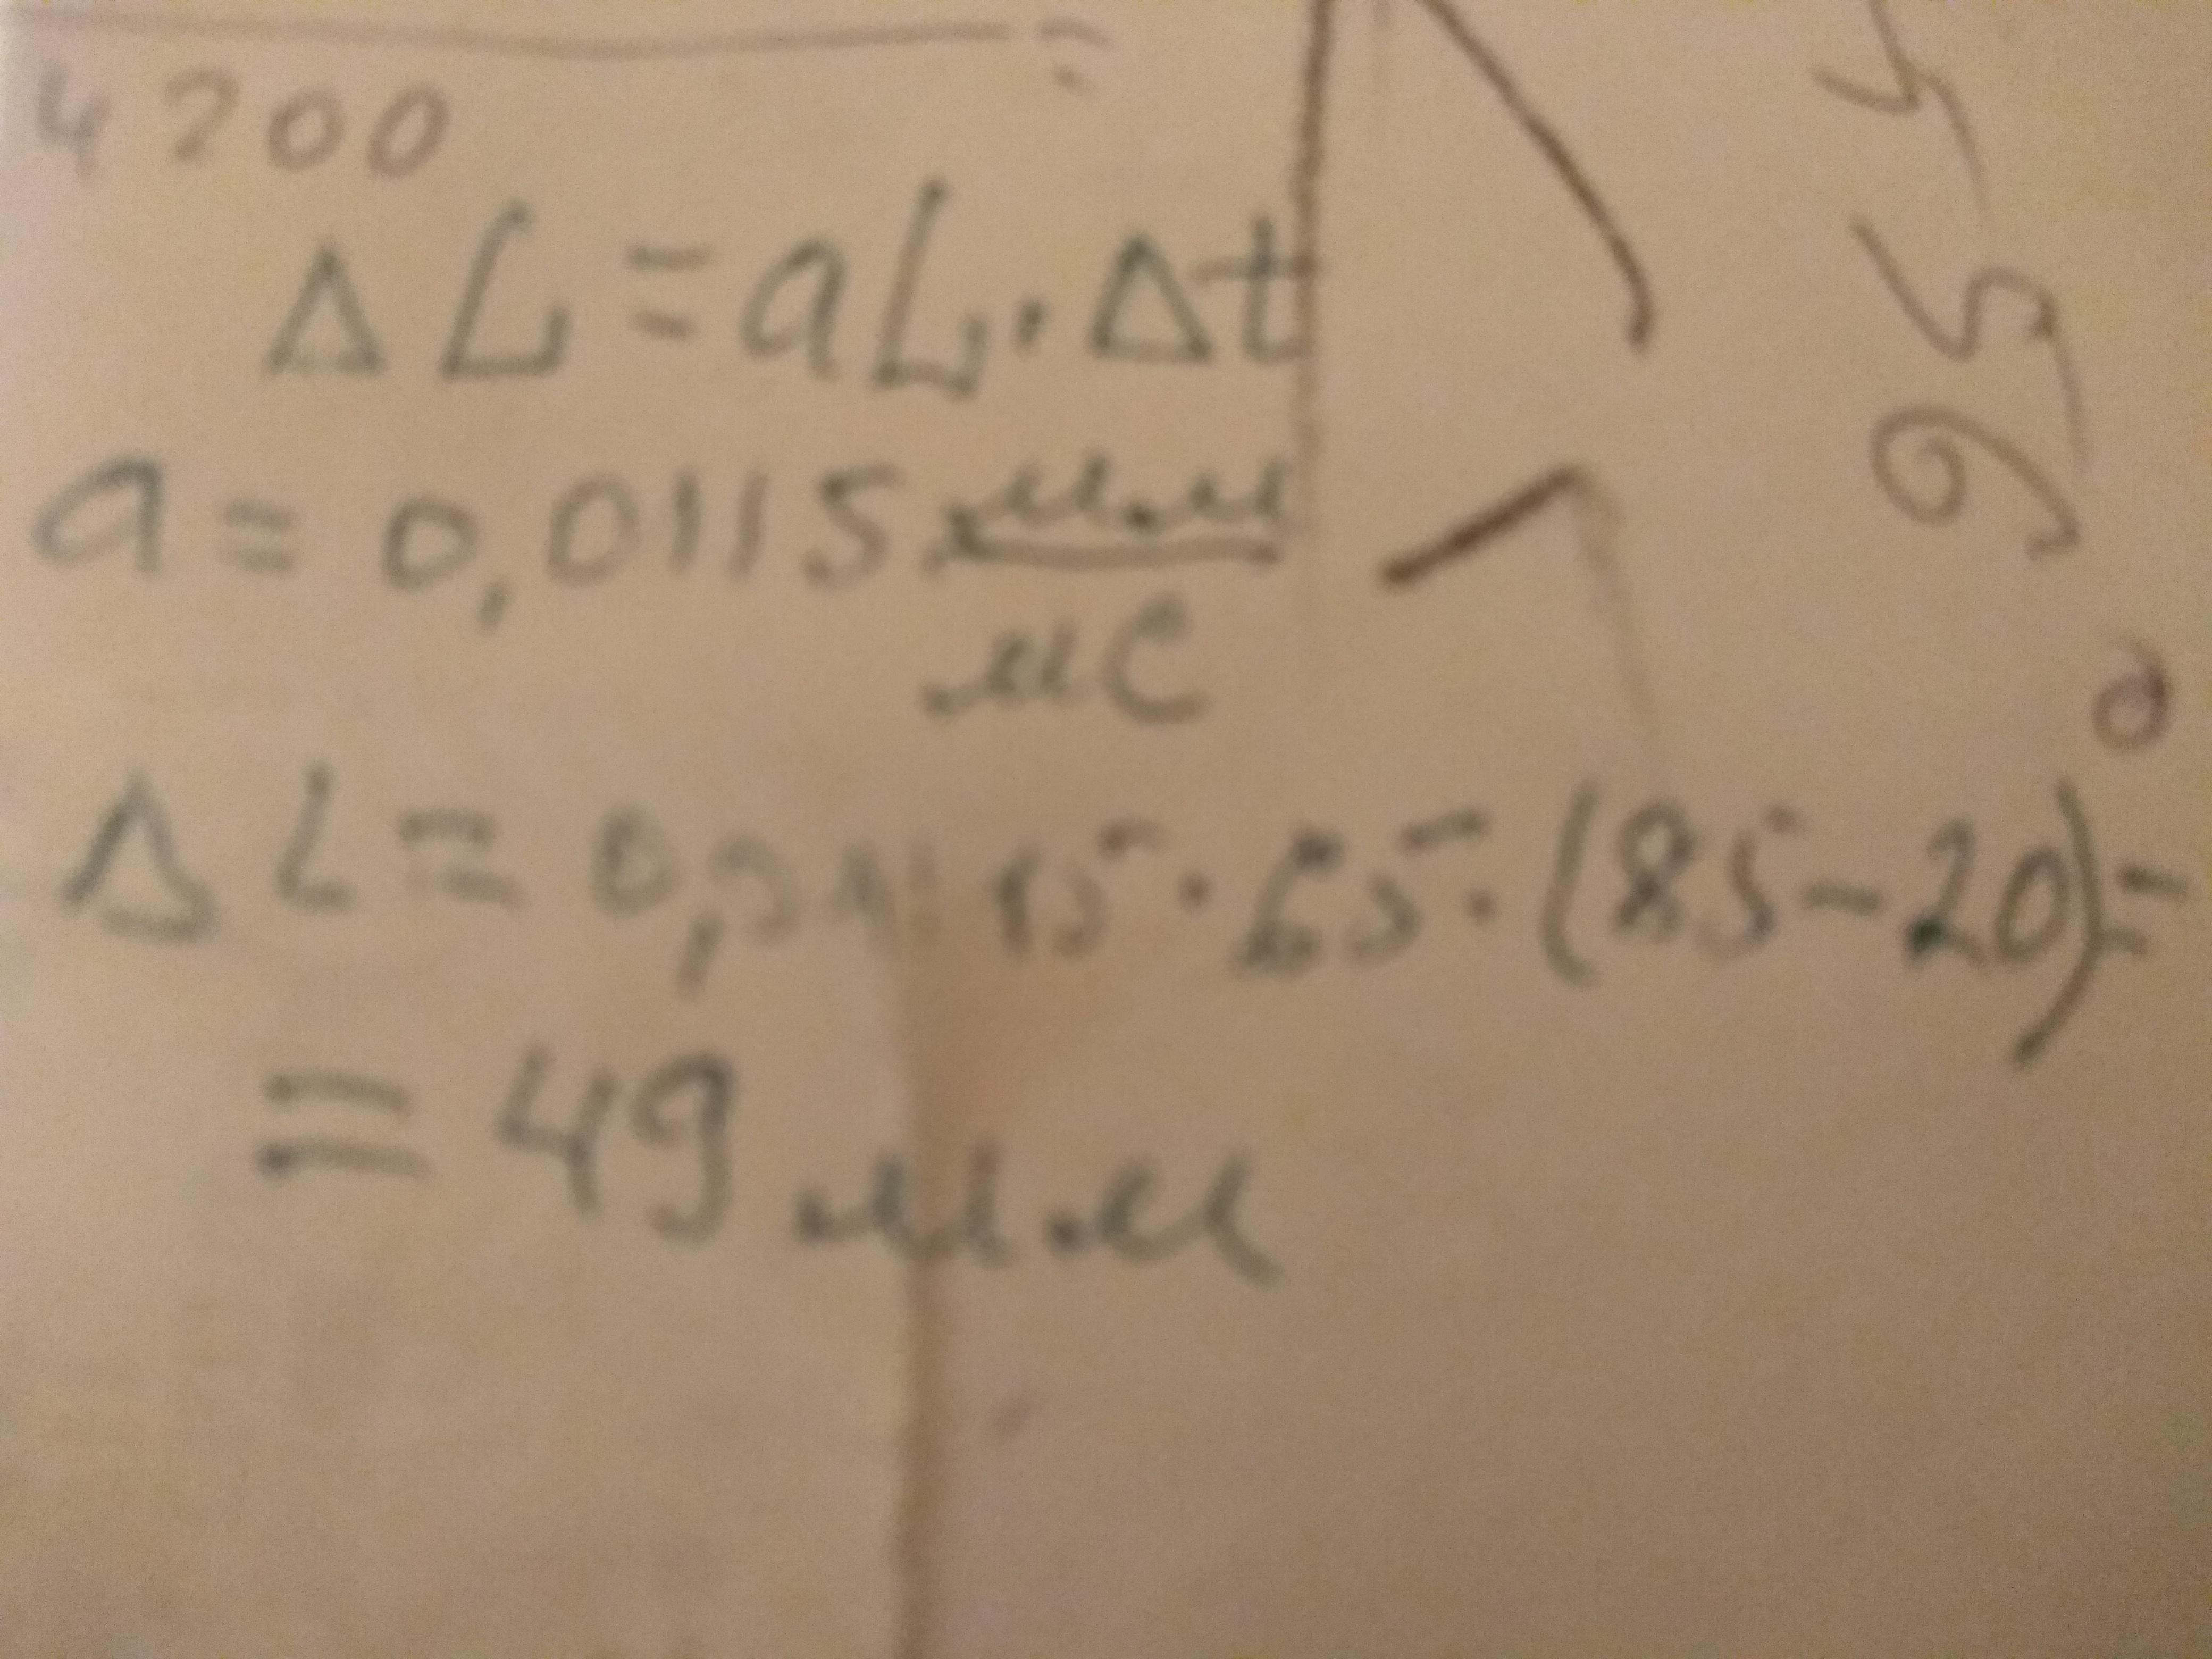 4200
ΔL = aL · Δt
a = 0,0115 мм
мС
ΔL = 0,0115 · 65 · (85-20) =
= 49 мм